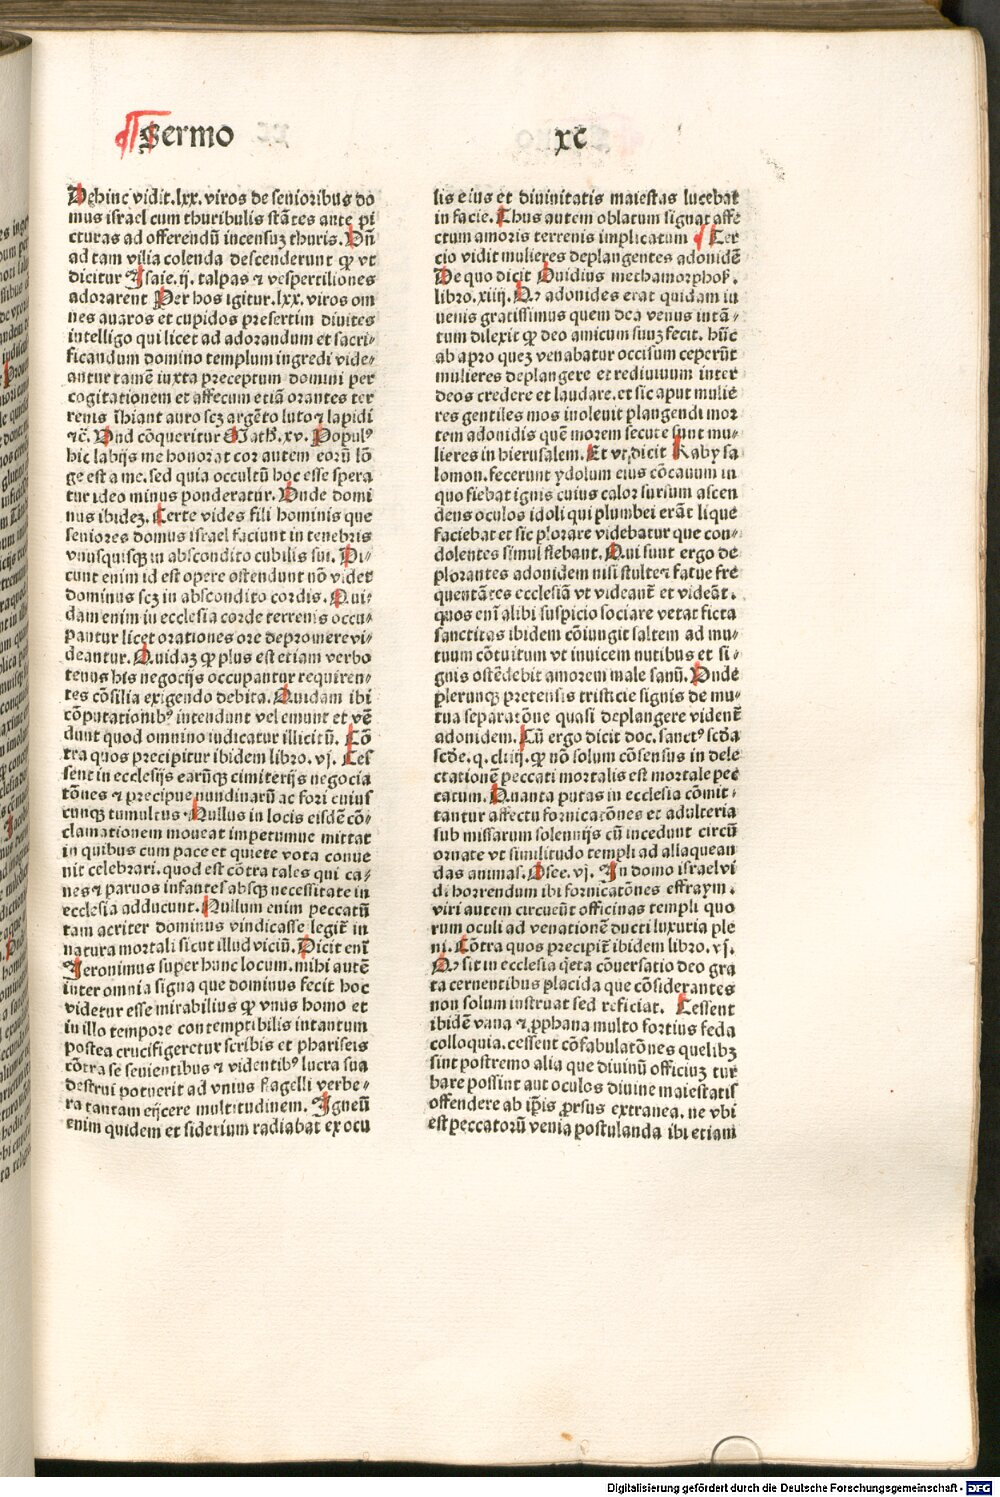 Sermo xc
Dehinc vidit .lxx. viros de senioribus do
mus israel cum thuribulis stãtes ante pi
cturas ad offerendũ incensuȝ thuris. Dñ
ad tam vilia colenda descenderunt qɔ vt
dicitur Isaie .ij. talpas ⁊ vespertiliones
adorarent Per hos igitur .lxx. viros om
nes auaros et cupidos presertim diuites
intelligo qui licet ad adorandum et sacri⸗
ficandum domino templum ingredi vide⸗
antur tamẽ iuxta preceptum domini per
cogitationem et affecum etiã orantes ter
renis ĩhiant auro scȝ argẽto luto ⁊ lapidi
⁊c̃. Vnd cõqueritur Math. xv. Populꝰ
hic labijs me honorat cor autem eorũ lõ
ge est a me. sed quia occultũ hoc esse spera
tur ideo minus ponderatur. Vnde domi
nus ibideȝ. Certe vides fili hominis que
seniores domus israel faciunt in tenebris
vnusquisqȝ in abscondito cubilis sui. Di⸗
cunt enim id est opere ostendunt nõ videt
dominus scȝ in abscondito cordis. Qui⸗
dam enim in ecclesia corde terrenis occu⸗
pantur licet orationes ore depromere vi⸗
deantur. Quidaȝ qɔ plus est etiam verbo
tenus his negocijs occupantur requiren⸗
tes cõsilia exigendo debita. Quidam ibi
cõputationibꝰ intendunt vel emunt et vẽ
dunt quod omnino iudicatur illicitũ. Cõ
tra quos precipitur ibidem libro. vj. Ces
sent in ecclesijs earũqȝ cimiterijs negocia
tõnes ⁊ precipue nundinarũ ac fori cuius
cunqȝ tumultus. Nullus in locis eisdẽ cõ⸗
clamationem moueat impetumue mittat
in quibus cum pace et quiete vota conue
nit celebrari. quod est cõtra tales qui ca⸗
nes ⁊ paruos infantes absqȝ necessitate in
ecclesia adducunt. Nullum enim peccatũ
tam acriter dominus vindicasse legit̃ in
natura mortali sicut illud viciũ. Dicit eni̅
Jeronimus super hunc locum. mihi autẽ
inter omnia signa que dominus fecit hoc
videtur esse mirabilius qɔ vnus homo et
in illo tempore contemptibilis intantum
postea crucifigeretur scribis et phariseis
cõtra se seuientibus ⁊ videntibꝰ lucra sua
destrui potuerit ad vnius flagelli verbe⸗
ra tantam eijcere multitudinem. Igneũ
enim quidem et siderium radiabat ex ocu
lis eius et diuinitatis maiestas lucebat
in facie. Thus autem oblatum signat affe
ctum amoris terrenis implicatum Ter
cio vidit mulieres deplangentes adonidẽ
De quo dicit Ouidius methamorphoß.
libro. xiiij. Qɔ adonides erat quidam iu
uenis gratissimus quem dea venus intã⸗
tum dilexit qɔ deo amicum suuȝ fecit. hũc
ab apro queȝ venabatur occisum ceperũt
mulieres deplangere et rediuiuum inter
deos credere et laudare. et sic aput mulie
res gentiles mos inoleuit plangendi mor
tem adonidis quẽ morem secute sunt mu⸗
lieres in hierusalem. Et vt dicit Raby sa
lomon. fecerunt ydolum eius cõcauum in
quo fiebat ignis cuius calor sursum ascen
dens oculos idoli qui plumbei erãt lique
faciebat et sic plorare videbatur que con⸗
dolentes simul flebant. Qui sunt ergo de
plorantes adonidem nisi stulte ⁊ fatue fre
quentãtes ecclesiã vt videant̃ et videãt.
quos eni̅ alibi suspicio sociare vetat ficta
sanctitas ibidem cõiungit saltem ad mu⸗
tuum cõtuitum vt inuicem nutibus et si⸗
gnis ostẽdebit amorem male sanũ. Vnde
plerunqȝ pretensis tristicie signis de mu⸗
tua separatõne quasi deplangere vident̃
adonidem. Cũ ergo dicit doc. sanctꝰ scd̃a
scd̃e. q. cliiij. qɔ nõ solum cõsensus in dele
ctationẽ peccati mortalis est mortale pec
catum. Quanta putas in ecclesia cõmit⸗
tantur affectu fornicatõnes et adulteria
sub missarum solennijs cũ incedunt circũ
ornate vt similitudo templi ad aliaquean
das animas. Osee. vj. In domo israel vi
di horrendum ibi fornicatõnes effraym.
viri autem circueũt officinas templi quo
rum oculi ad venationẽ ducti luxuria ple
ni. Cõtra quos precipit̃ ibidem libro. vj.
Qɔ sit in ecclesia q̃eta cõuersatio deo gra
ta cernentibus placida que cõsiderantes
non solum instruat sed reficiat. Cessent
ibidẽ vana ⁊ ꝓphana multo fortius feda
colloquia. cessent cõfabulatõnes quelibȝ
sint postremo alia que diuinũ officiuȝ tur
bare possint aut oculos diuine maiestatis
offendere ab ip̃is ꝓrsus extranea. ne vbi
est peccatorũ venia postulanda ibi etiam
Digitalisierung gefördert durch die Deutsche Forschungsgemeinschaft - DFG